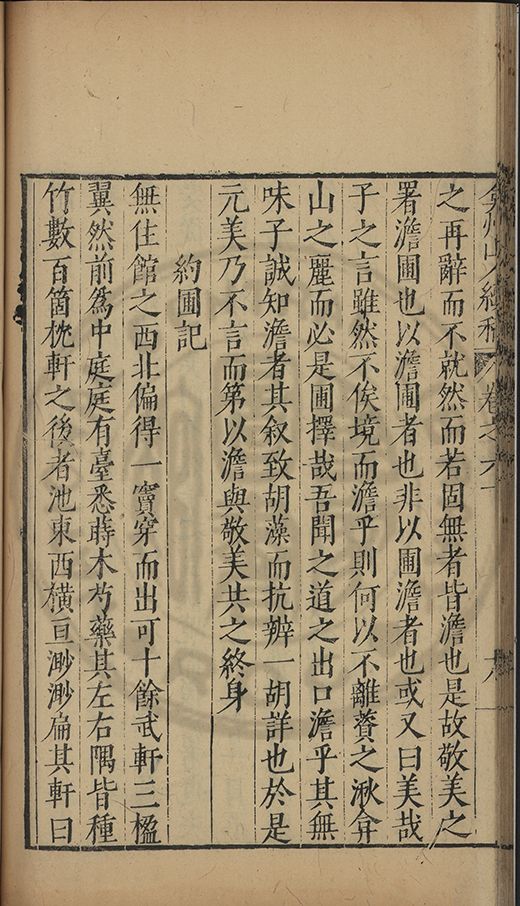 弇州山人續稿 卷之六十 六
之再辭而不就然而若固無者皆澹也是故敬美之
署澹圃也以澹圃者也非以圃澹者也或又曰美哉
子之言雖然不俟境而澹乎則何以不離薋之湫弇
山之麗而必是圃擇哉吾聞之道之出口澹乎其無
味子誠知澹者其叙致胡藻而抗辨一胡詳也於是
元美乃不言而第以澹與敬美共之終身
約圃記
無住館之西北偏得一竇穿而出可十餘武軒三楹
翼然前爲中庭庭有臺悉蒔木芍藥其左右隅皆種
竹數百箇枕軒之後者池東西橫亘渺渺扁其軒曰